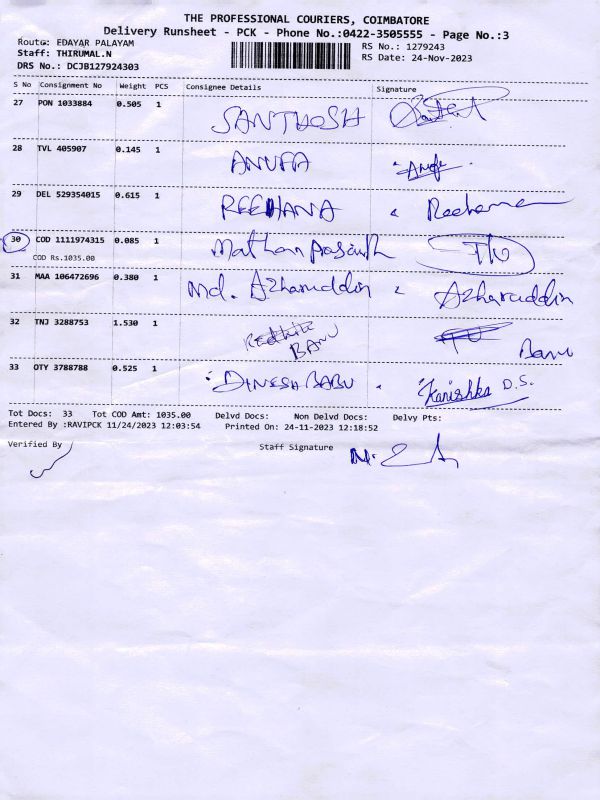 THE PROFESSIONAL COURIERS, COIMBATORE
Delivery Runsheet - PCK - Phone No.:0422-3505555 - Page No.:3
Route: EDAYAR PALAYAM
RS No.: 1279243
Staff: THIRUMAL.N
RS Date: 24-Nov-2023
DRS No.: DCJB127924303
S No Consignment No Weight PCS Consignee Details Signature
27 PON 1033884 0.505 1 SANTHOSH
28 TVL 405907 0.145 1 ANUFA
29 DEL 529354015 0.615 1 REEHANA Reehana
30 COD 1111974315 0.085 1 Mathan prasath
COD Rs.1035.00
31 MAA 106472696 0.380 1 Md. Azharuddin Azharuddin
32 TNJ 3288753 1.530 1 BANU Banu
33 OTY 3788788 0.525 1 DINESH BABU Kanishka D.S.
Tot Docs: 33 Tot COD Amt: 1035.00 Delvd Docs: Non Delvd Docs: Delvy Pts:
Entered By :RAVIPCK 11/24/2023 12:03:54 Printed On: 24-11-2023 12:18:52
Verified By Staff Signature